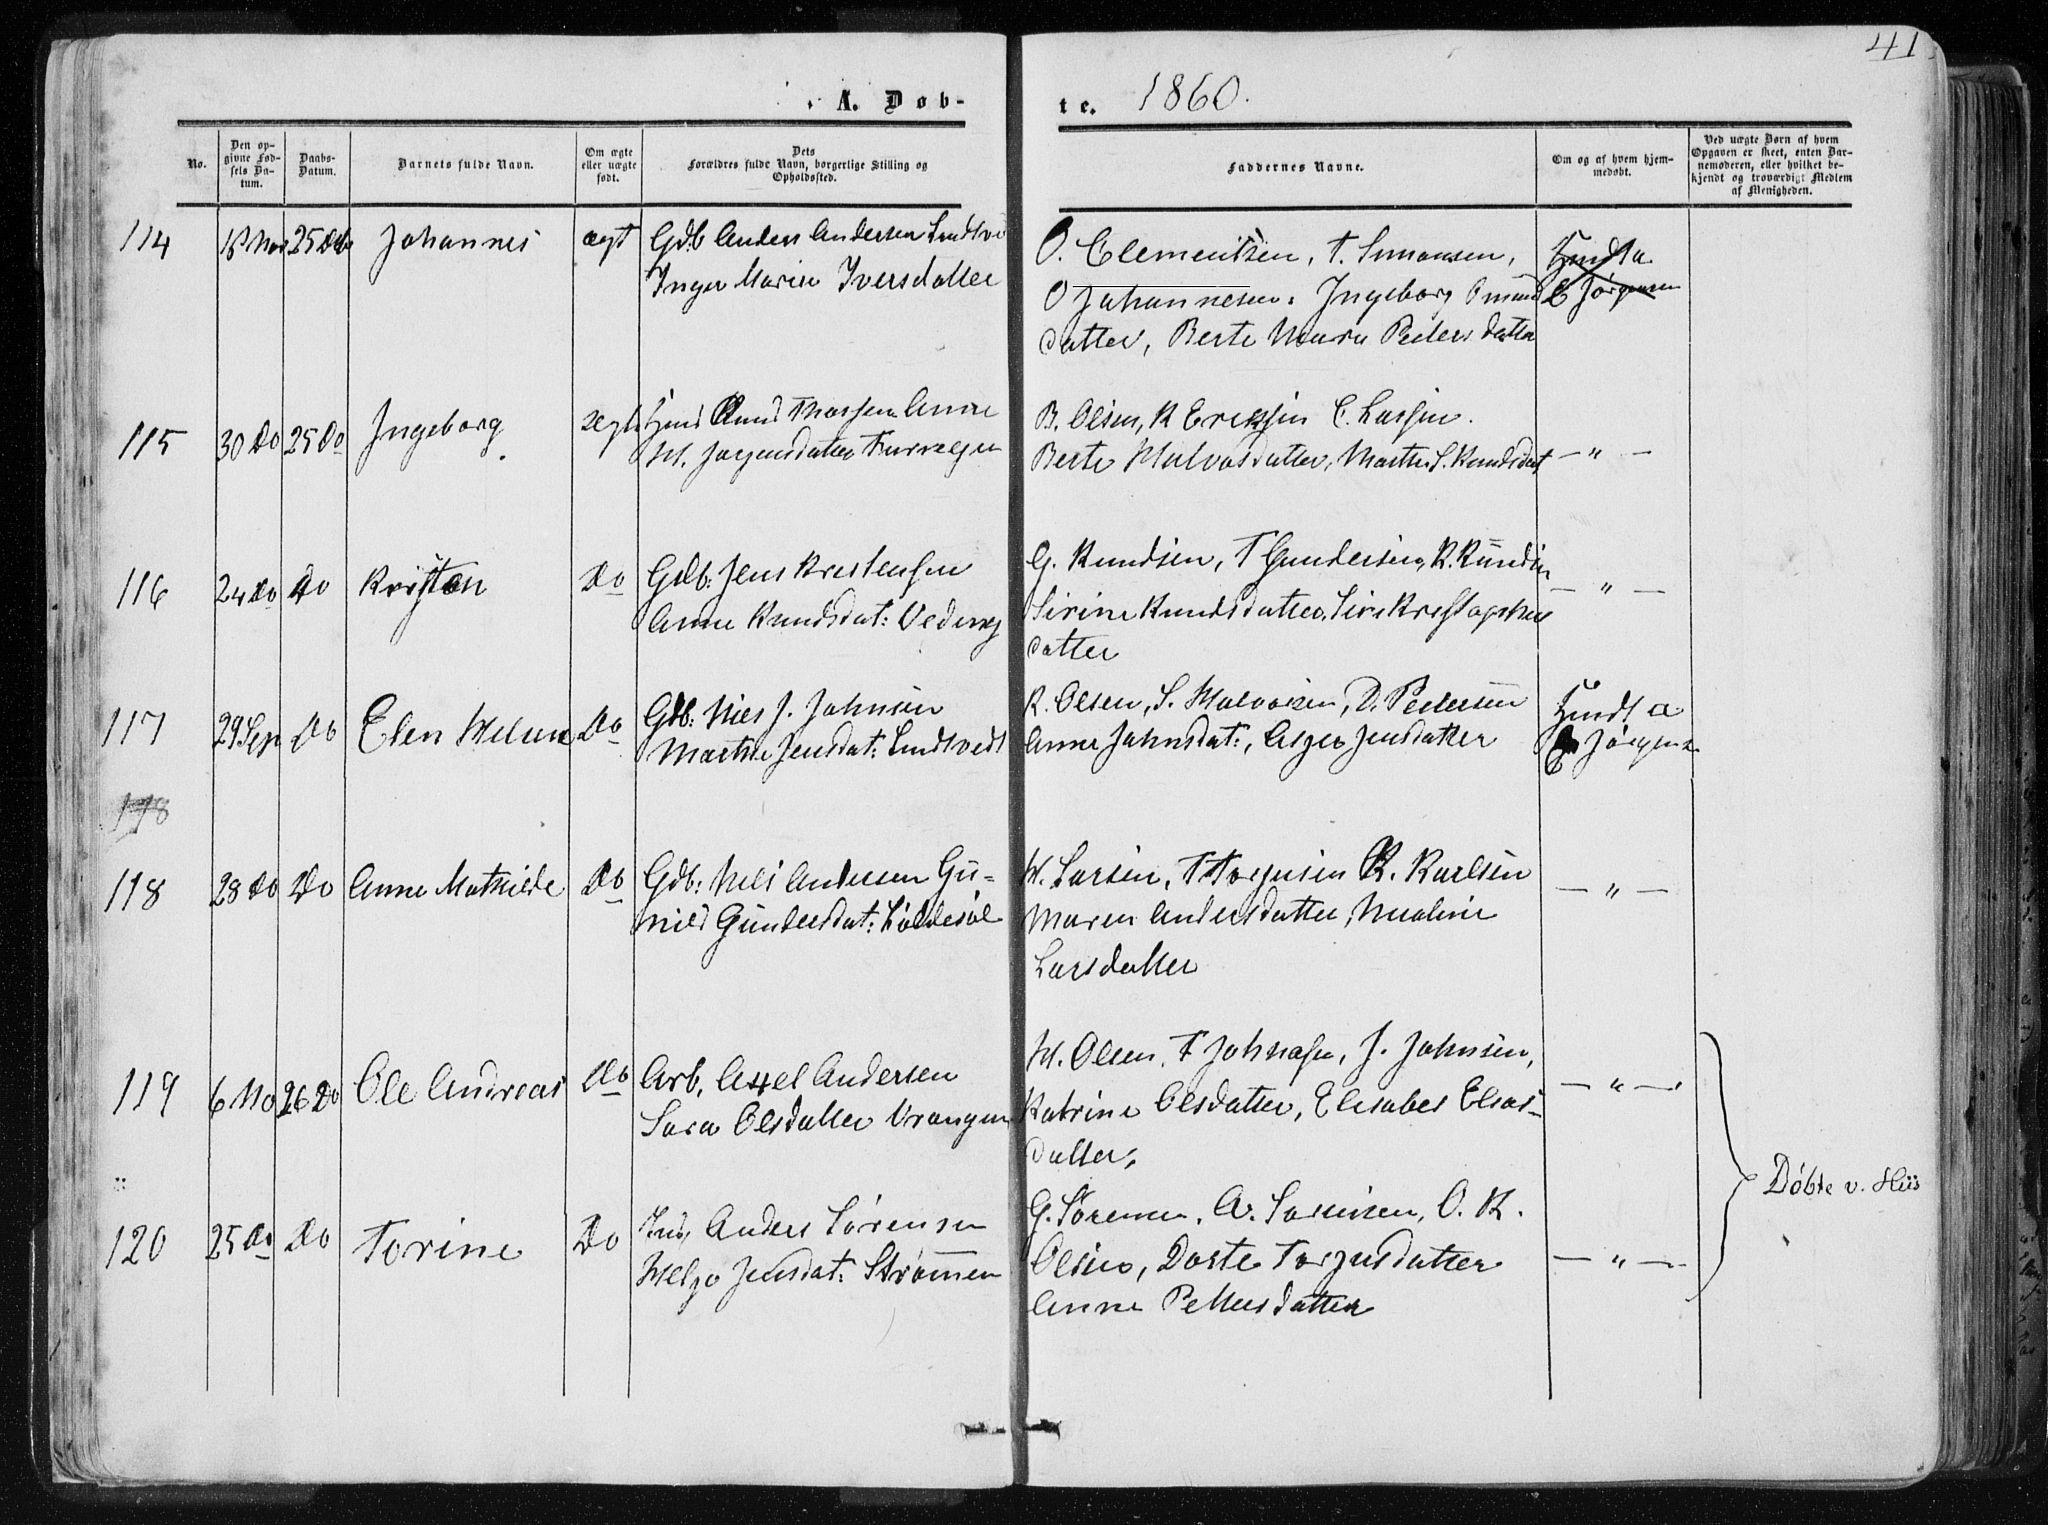 41
A. Døb-
te. 1860.
No.
Den op-
givne Fød-
sels Da-
tum.
Daabs-
Datum.
Barnets fulde Navn.
Om ægte
eller uægte
født.
Dets
Forældres fulde Navn, borgerlige Stilling og
Opholdssted.
Faddernes Navne.
Om og af hvem hjem-
medøbt.
Ved uægte Børn af hvem
Opgaven er skeet, enten Bar-
nemoderen, eller hvilket be-
kjendt og troværdigt Medlem
af Menigheden.
114 18 Nov 25 Johannes ægt Gdb Anders Andersen
Inger Marie Iversdatter
O. Clementsen, T. Simonsen,
O Johannesen, Ingeborg
datter, Berte Maria Peders datter
E Jørgensen
115 30 Do 25 Do Ingeborg Knud Anne
M.
B. Olsen, K Eriksen C. Larssen.
Berte Halvorsdatter, Marthe S. Knudsdat
— " —
116 24 Do Do Kristen Do Gdb: Jens Kristensen
Anne Knudsdat:
G. Knudsen, T Gundersen, K. Knudsen
Sirine Knudsdatter,
datter
— " —
117 29 Sep Do Elen Do Gdb: Niels J. Johnsen
Marthe Jensdat: Lindtvedt
K. Olsen, S. Halvorsen, D. Pedersen
Anne Johnsdat:, Jensdatter
Hmdt a
E Jørgens
118
118 28 Do Do Anne Mathilde Do Gdb: Nils Andersen Gu-
nild Gundersdat: Løddesøl
H. Larsen, T Torjusen K. Karlsen
Maren Andersdatter,
Larsdatter
— " —
119 6 No 26 Do Ole Andreas Do Arb, Axel Andersen
Sara Olsdatter Vrangen
H. Olsen, T Johnsen, J. Johnsen,
Katrine Olsdatter, Elisabet Elias-
datter,
— " —
Døbte v. Hiis
120 25 Do Do Torine Do Anders Sørensen
Helge Jensdat: Strømmen
G. Sørensen, A. Sørensen, O. K.
Olsen, Dorte Torjusdatter
Anne Pettersdatter
— " —